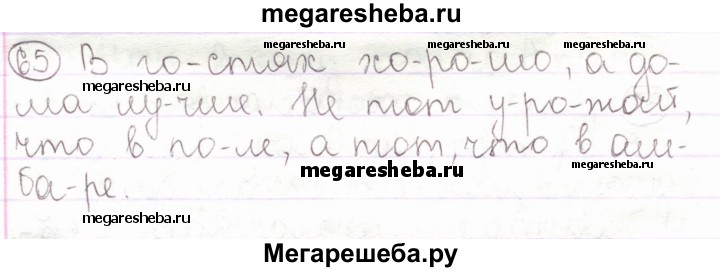 megaresheba.ru
megaresheba.ru megaresheba.ru
65 В го-стях хо-ро-шо, а до-
megaresheba.ru
ма лу-чше. Не тот у-ро-жай,
что в по-ле, а тот, что в ам-
megaresheba.ru megaresheba.ru
ба-ре.
megaresheba.ru megaresheba.ru
Мегарешеба.ру